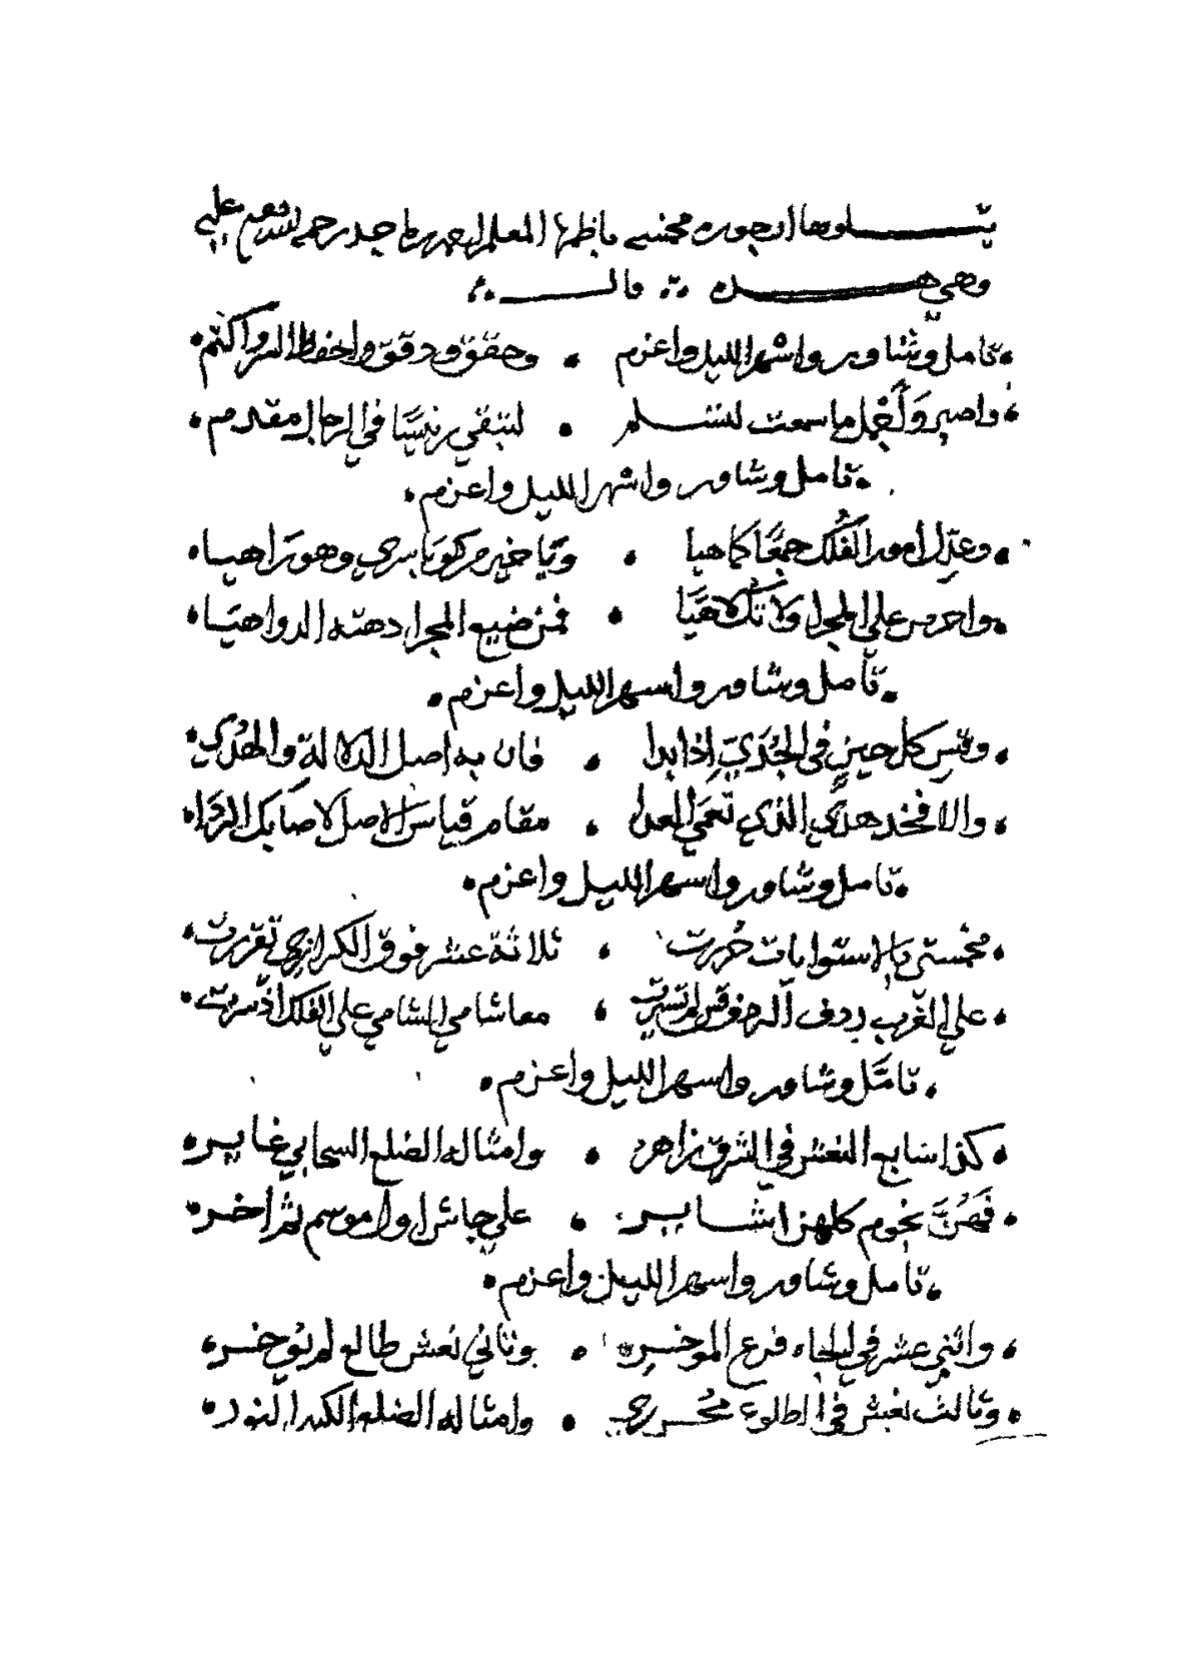 يتلوها ارجوزه مخمسه ناظمها المعلم احمد بن ماجد رحمه الله تعالى
وهي هذه قال
تامل وشاور واسهر الليل واعزم • وحقق ودقق واحفظ السر واكتم
واصبر واجمل ما سمعت لتسلم • لتبقي رئيسًا في الرجال مقدم
تامل وشاور واسهر الليل واعزم
وعدل امور الفلك جمعًا كما هيا • ويا خير مركوبا سري وهو زاهيا
واحرص علي المجرا ولا تك لاهيَا • فمن ضيع المجرا دهته الدواهيَا
تامل وشاور واسهر الليل واعزم
وقس كل حين في الجُدَيّ اذا بدا • فان به اصل الدلالة والهُدَي
والا فخذ هدي الذي تعمي العدا • مقام قياس الاصل لا صابك الردا
تامل وشاور واسهر الليل واعزم
مخمستي بالاستوايات حُررت • ثلاثة عشر فوق الكرازي تقررت
علي الغرب ردف • معا شامي الشامي علي الفلك اذ سرت
تامّل وشاور واسهر الليل واعزم
كذا سابع النعش في الشرق زاهر • وامثاله الضلع السحابي غاير
فَهُنَّ نجوم كلهن اشاير • علي جاش اول موسم ثم اخر
تامل وشاور واسهر الليل واعزم
واثني عشر في الجاه فرع الموخر • وثاني نعش طالع
وثالث نعش في الطلوع محرري • وامثاله الضلع الكبد النور